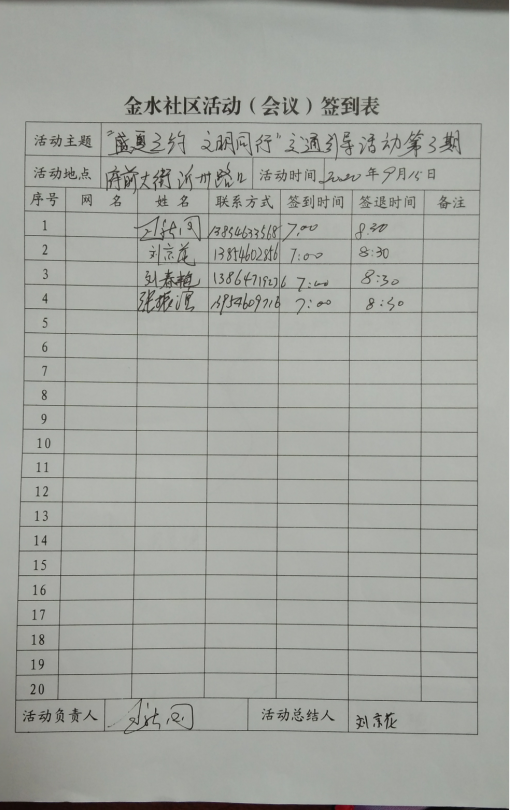 金水社区活动（会议）签到表
活动主题 "盛夏之约 文明同行"交通引导活动第3期
活动地点 府前大街沂州路口 活动时间 2020年9月15日
序号 网名 姓名 联系方式 签到时间 签退时间 备注
1 13854633568 7:00 8:30
2 刘京花 13854602856 7:00 8:30
3 刘春梅 7:00 8:30
4 张振 13954609716 7:00 8:30
5
6
7
8
9
10
11
12
13
14
15
16
17
18
19
20
活动负责人 活动总结人 刘京花